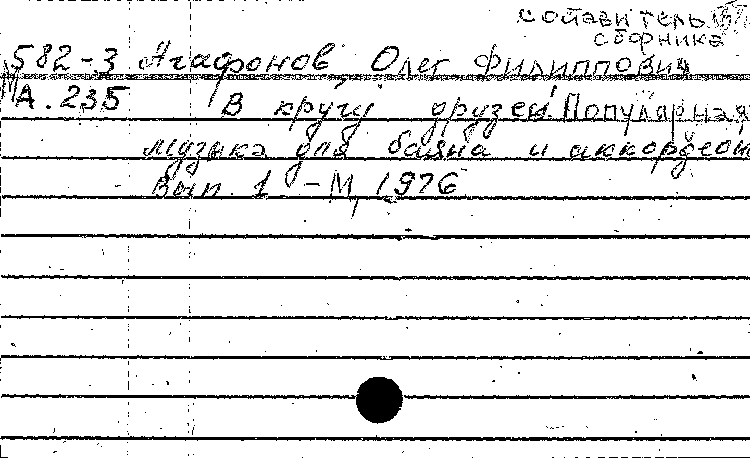 составитель
сборника
582-3 Агафонов, Олег Филиппович
А. 235 В кругу друзей. Популярная
музыка для баяна и аккордеон
Вып. 1. - М, 1976